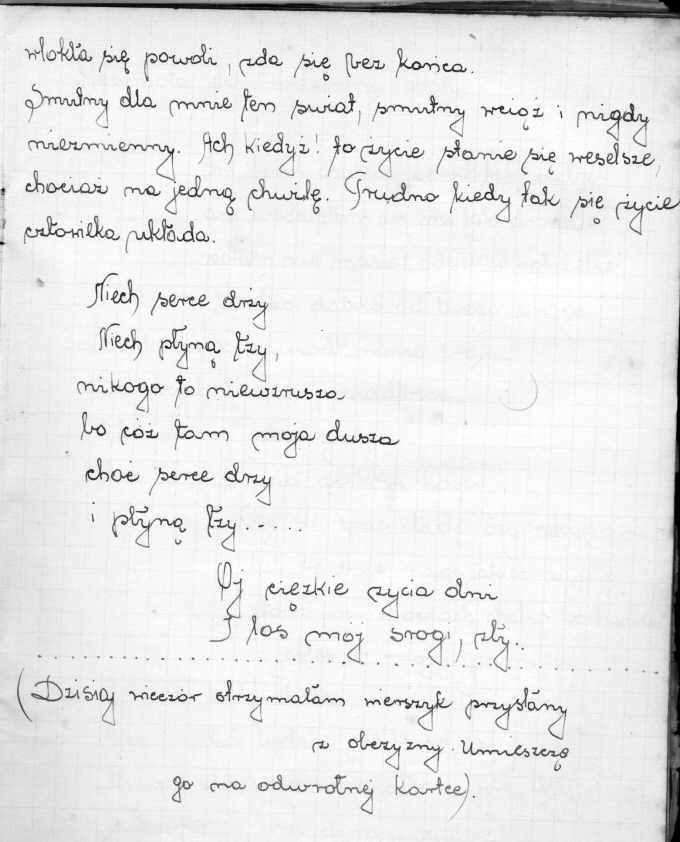 wlokła się powoli, zda się bez końca.
Smutny dla mnie ten swiat, smutny wciąż i nigdy
niezmienny. Ach kiedyż! to życie stanie się weselsze,
chociaż na jedną chwilę. Trudno kiedy tak się życie
człowieka układa.
Niech serce drży
Niech płyną łzy,
nikogo to niewzrusza
bo cóż tam moja dusza
choć serce drży
i płyną łzy.....
Oj ciężkie życia dni
I los mój srogi, zły..
(Dzisiaj wieczór otrzymałam wierszyk przysłany
z obczyzny. Umieszczę
go na odwrotnej kartce).